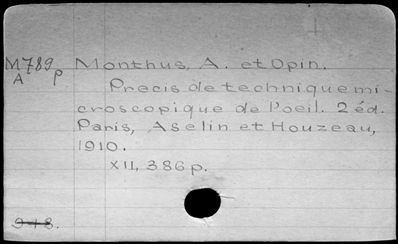 M789p Monthus, A. et Opin.
A
Precis de technique mi-
croscopique de l'oeil. 2 éd.
Paris, Aselin et Houzeau,
1910.
XII, 386 p.